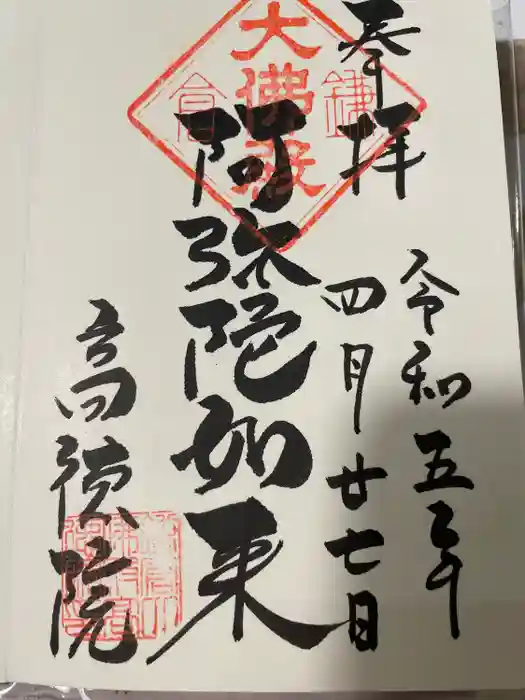 奉拝
令和五年
四月廿七日
阿弥陀如来
高徳院
大佛殿
鎌
倉